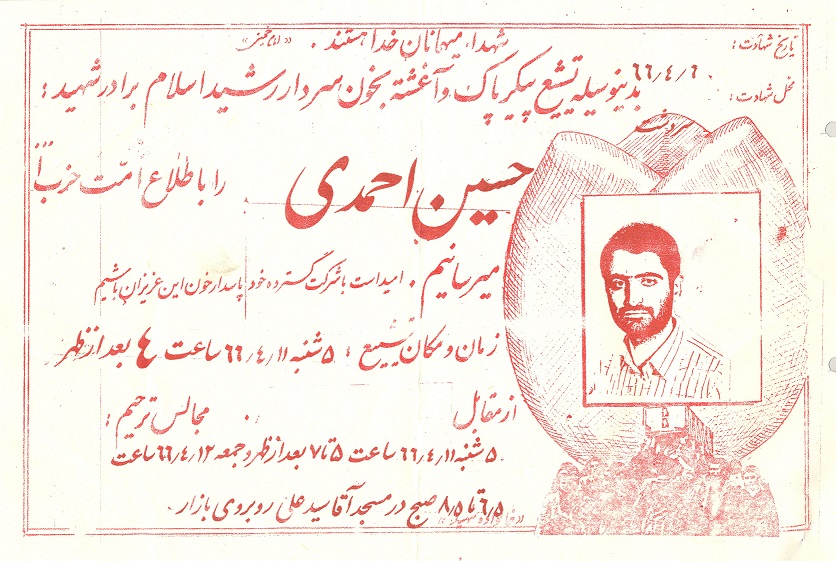 شهداء میهمانان خدا هستند . «امام خمینی»
تاریخ شهادت : ۶۶/۴/۶
محل شهادت : سردشت
بدینوسیله تشیع پیکر پاک و آغشته بخون سردار رشید اسلام برادر شهید :
حسین احمدی
را باطلاع امت حزب ا...
میرسانیم . امید است با شرکت گسترده خود پاسدار خون این عزیزان باشیم
زمان و مکان تشییع : ۵ شنبه ۶۶/۴/۱۱ ساعت ۴ بعد از ظهر
از مقابل .
مجالس ترحیم :
۵ شنبه ۶۶/۴/۱۱ ساعت ۵ تا ۷ بعد از ظهر و جمعه ۶۶/۴/۱۲ ساعت
۶/۵ تا ۸/۵ صبح در مسجد آقا سید علی روبروی بازار .